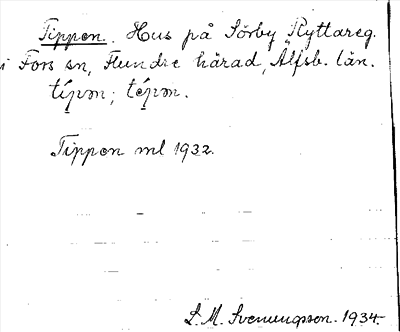 Tippen. Hus på Sörby Ryttareg.
i Fors sn, Flundre härad, Älfsb. län.
Tippen ml 1932.
S. M. Svenungsson. 1934